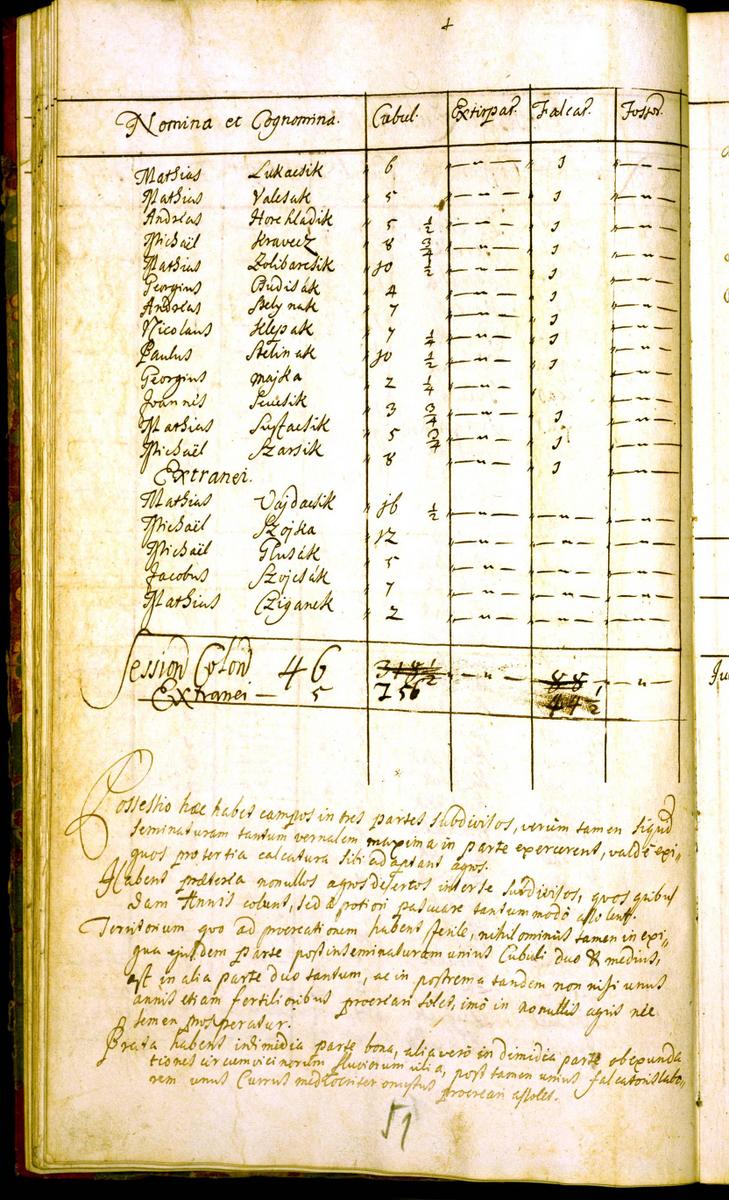 Nomina et Cognomina. Cubul. Extirpat. Falcat. Fossor.
Mathias Lukacsik 6 1
Mathias Valesak 5 1
Andreas Horehladik 5 1/2 1
Michaël Kravecz 8 3/4 1
Mathias Zolibarcsik 10 1/2 1
Georgius Budisák 4 1
Andreas Belynak 7 1
Nicolaus Klepak 7 1/4 1
Paulus Stelinak 10 1/2 1
Georgius Majka 2 1/4
Joannis
Mathias Sustacsik 3 3/4 1
Michaël Szarsik 5 3/4 1
8 1
Extranei.
Mathias Vajdacsik 16 1/2
Michaël Szojka 12
Michaël Glusák 5
Jacobus Szojcsák 7
Mathias Cziganek 2
Session Colon 46 318 1/2 88
Extranei — 5 256 44 1/2
Possessio hæc habet campos in tres partes subdivisos, verùm tamen siquid
seminaturam tantum vernalem maxima in parte exercerent, valdè exi-
guos pro tertia calcatura sibi adaptant agros.
Habent præterea nonullos agros desertos inter se subdivisos, quos quibus
dam Annis colunt, sed à potiori pascuare tantummodò assolent.
Territorium quo ad procreationem habent sterile, nihilominus tamen in exi-
gua ejusdem parte post inseminaturam unius Cubuli duo & medius,
ast in alia parte duo tantum, ac in postrema tandem non nisi unus
annis etiam fertilioribus procreari solet, imò in nonullis agris nec
semen prosperatur.
Prata habent in dimidia parte bona, alia verò in dimidia parte ob exunda
tiones circumvicinorum fluviorum vilia, post tamen unius falcatoris labo-
rem unus Currus mediocriter onustus procreari assolet.
51